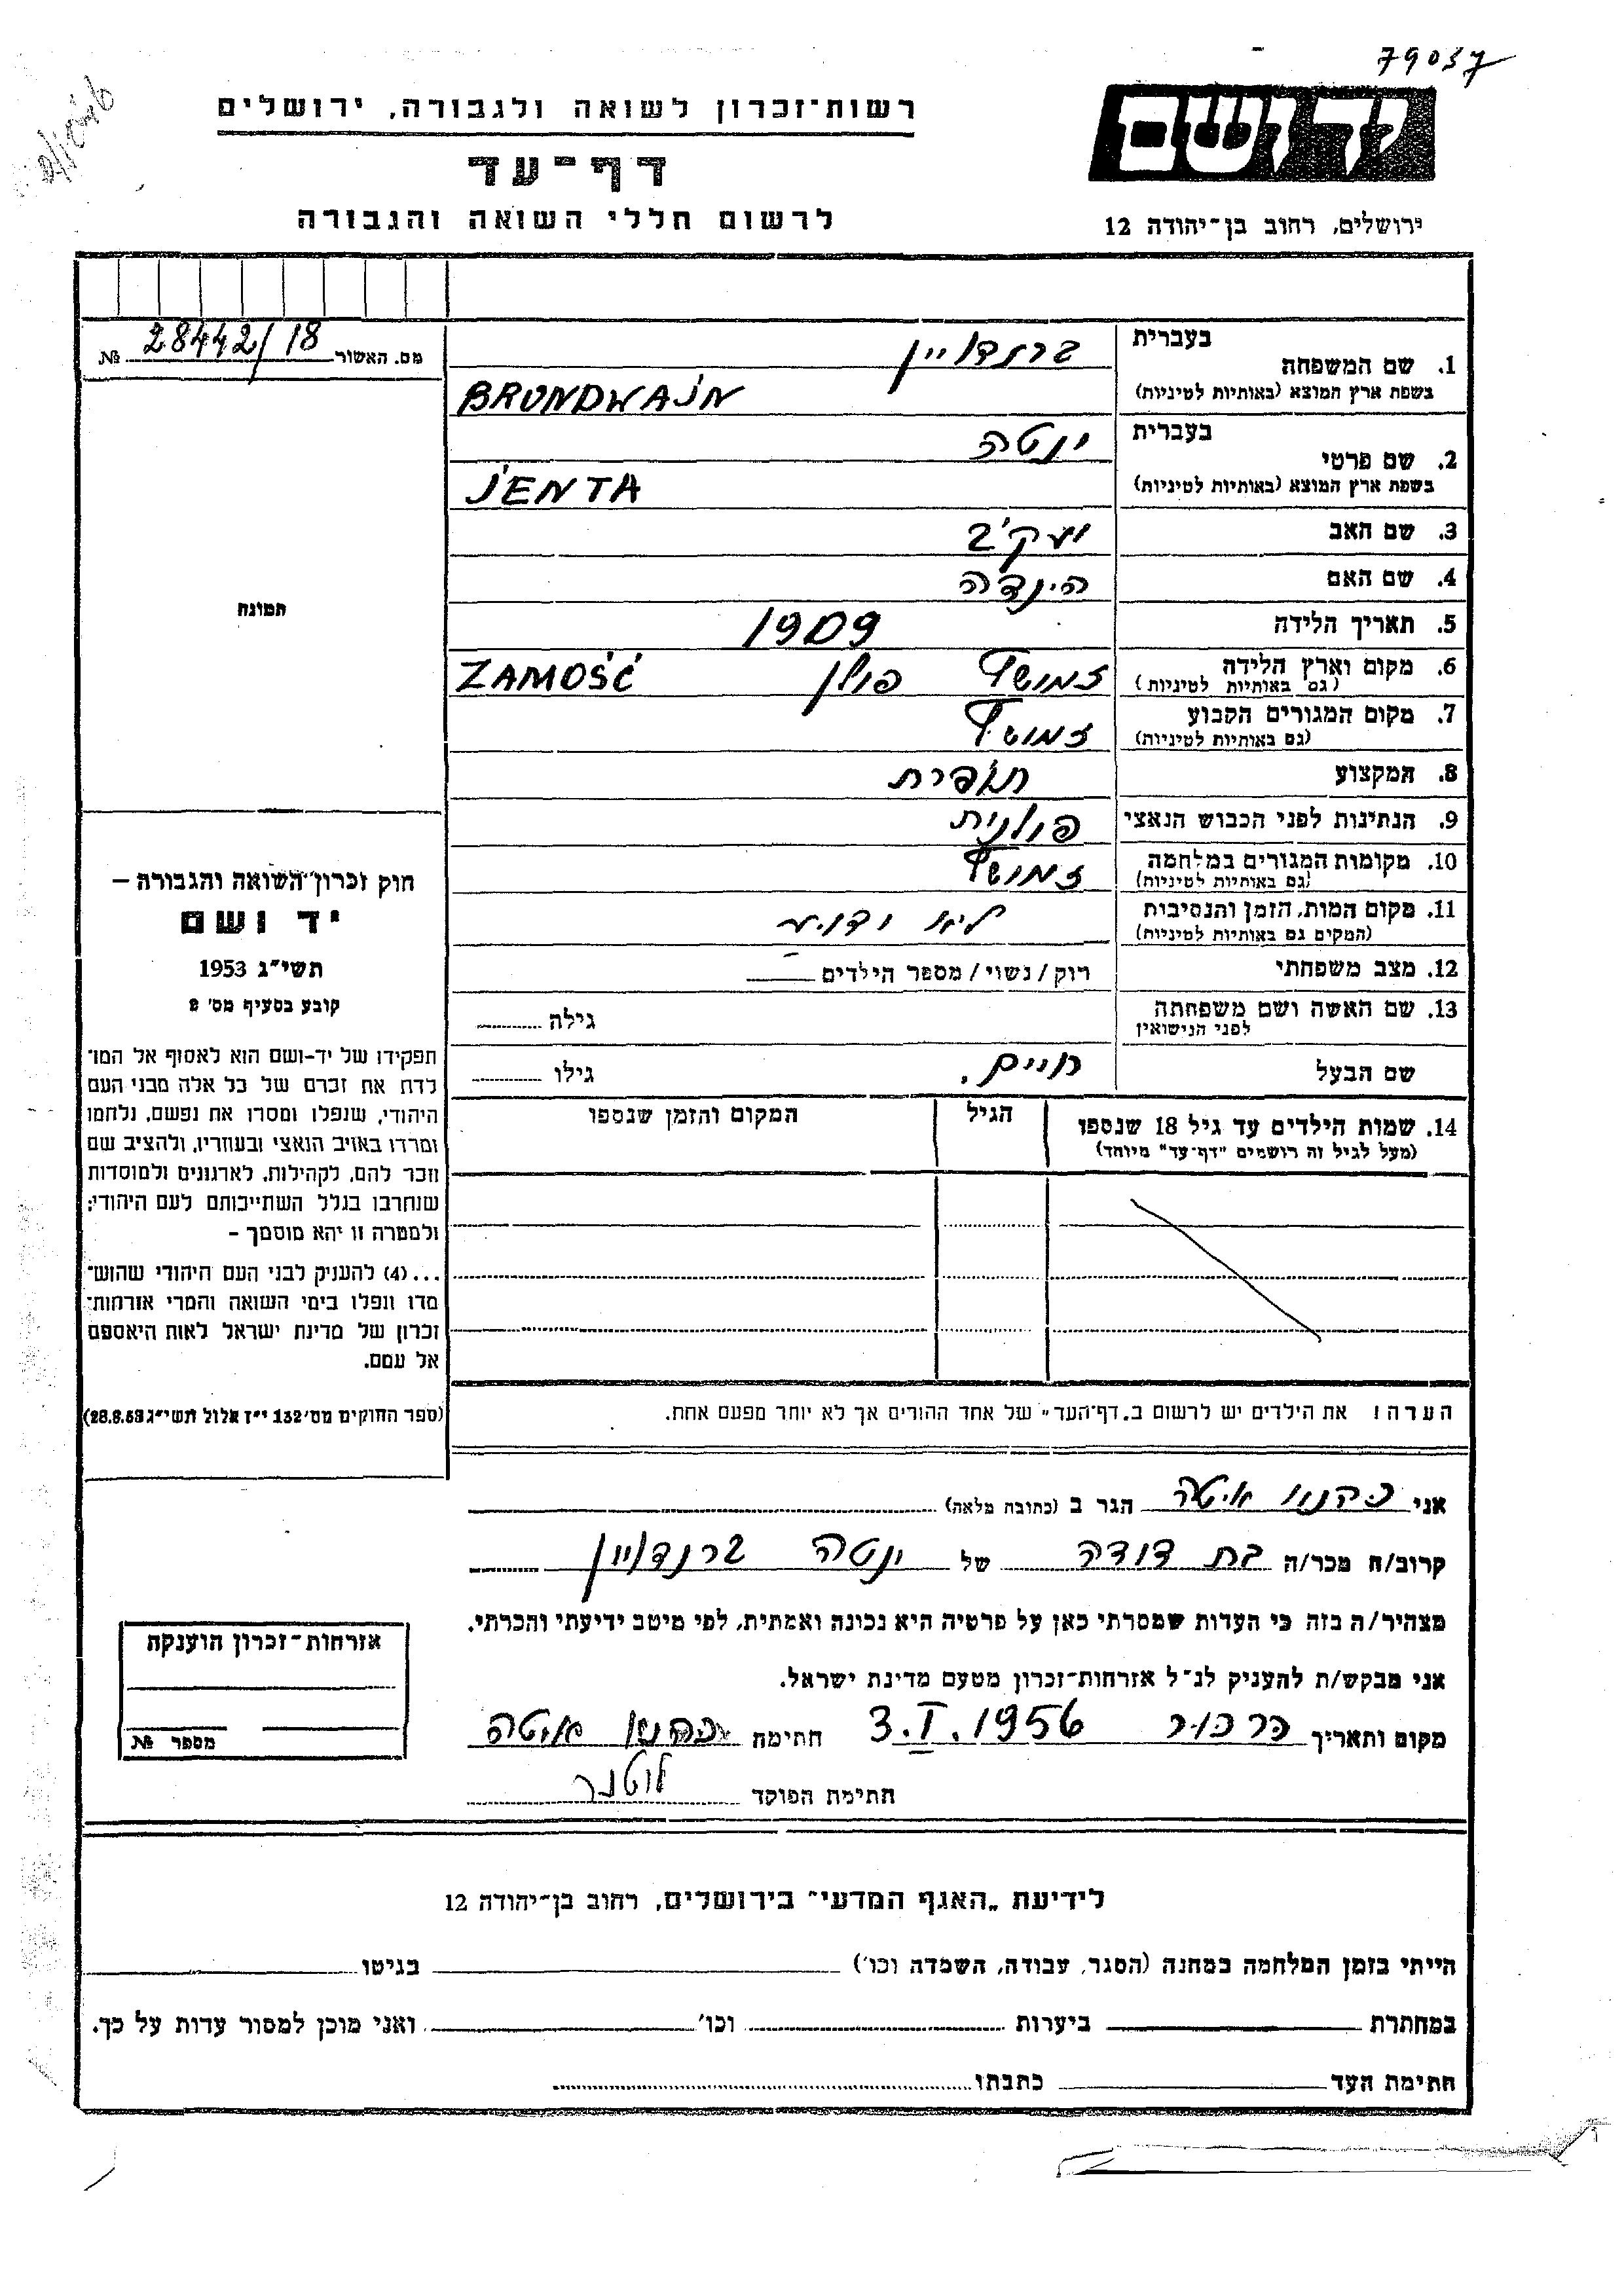 79037
רשות־זכרון לשואה ולגבורה, ירושלים
יד ושם
דף־עד
לרשום חללי השואה והגבורה
ירושלים, רחוב בן־יהודה 12
מס. האשור 28442/18 №
1. שם המשפחה בעברית ברנדוויין
בשפת ארץ המוצא (באותיות לטיניות) BRONDWAJN
2. שם פרטי בעברית ינטה
בשפת ארץ המוצא (באותיות לטיניות) JENTA
3. שם האב יעקב
4. שם האם הינדה
5. תאריך הלידה 1909
6. מקום וארץ הלידה (גם באותיות לטיניות) זמושץ פולין ZAMOŚĆ
7. מקום המגורים הקבוע (גם באותיות לטיניות) זמושץ
8. המקצוע תופרת
9. הנתינות לפני הכבוש הנאצי פולנית
10. מקומות המגורים במלחמה (גם באותיות לטיניות) זמושץ
11. מקום המות, הזמן והנסיבות (המקום גם באותיות לטיניות) לא ידוע
12. מצב משפחתי רוק/נשוי/מספר הילדים
13. שם האשה ושם משפחתה לפני הנישואין גילה
שם הבעל חיים. גילו
14. שמות הילדים עד גיל 18 שנספו הגיל המקום והזמן שנספו
(מעל לגיל זה רושמים "דף־עד" מיוחד)
תמונה
חוק זכרון השואה והגבורה –
יד ושם
תשי"ג 1953
קובע בסעיף מס' 2
תפקידו של יד-ושם הוא לאסוף אל המו־
לדת את זכרם של כל אלה מבני העם
היהודי, שנפלו ומסרו את נפשם, נלחמו
ומרדו באויב הנאצי ובעוזריו, ולהציב שם
וזכר להם, לקהילות, לארגונים ולמוסדות
שנחרבו בגלל השתייכותם לעם היהודי;
ולמטרה זו יהא מוסמך –
...(4) להעניק לבני העם היהודי שהוש־
מדו ונפלו בימי השואה והמרי אזרחות־
זכרון של מדינת ישראל לאות היאספם
אל עמם.
(ספר החוקים מס' 132 י"ז אלול תשי"ג 28.8.53)
הערה! את הילדים יש לרשום ב„דף־העד" של אחד ההורים אך לא יותר מפעם אחת.
אני כהנא איטה הגר ב (כתובת מלאה)
קרוב/ה מכר/ה בת דודה של ינטה ברנדוויין
מצהיר/ה בזה כי העדות שמסרתי כאן על פרטיה היא נכונה ואמתית, לפי מיטב ידיעתי והכרתי.
אני מבקש/ת להעניק לנ"ל אזרחות־זכרון מטעם מדינת ישראל.
מקום ותאריך כרכור 3.I.1956 חתימה כהנא איטה
חתימת הפוקד
אזרחות־זכרון הוענקה
מספר №
לידיעת „האגף המדעי" בירושלים, רחוב בן־יהודה 12
הייתי בזמן המלחמה במחנה (הסגר, עבודה, השמדה וכו') בגיטו
במחתרת ביערות וכו' ואני מוכן למסור עדות על כך.
חתימת העד כתבתו